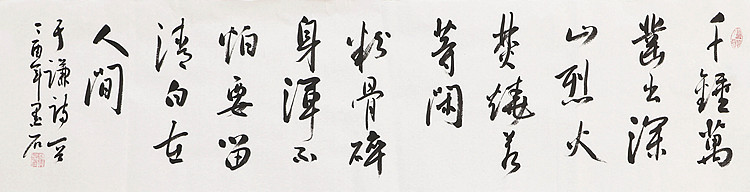 千錘萬
鑿出深
山烈火
焚燒若
等閑
粉骨碎
身渾不
怕要留
清白在
人間
于謙詩
丁酉年墨石